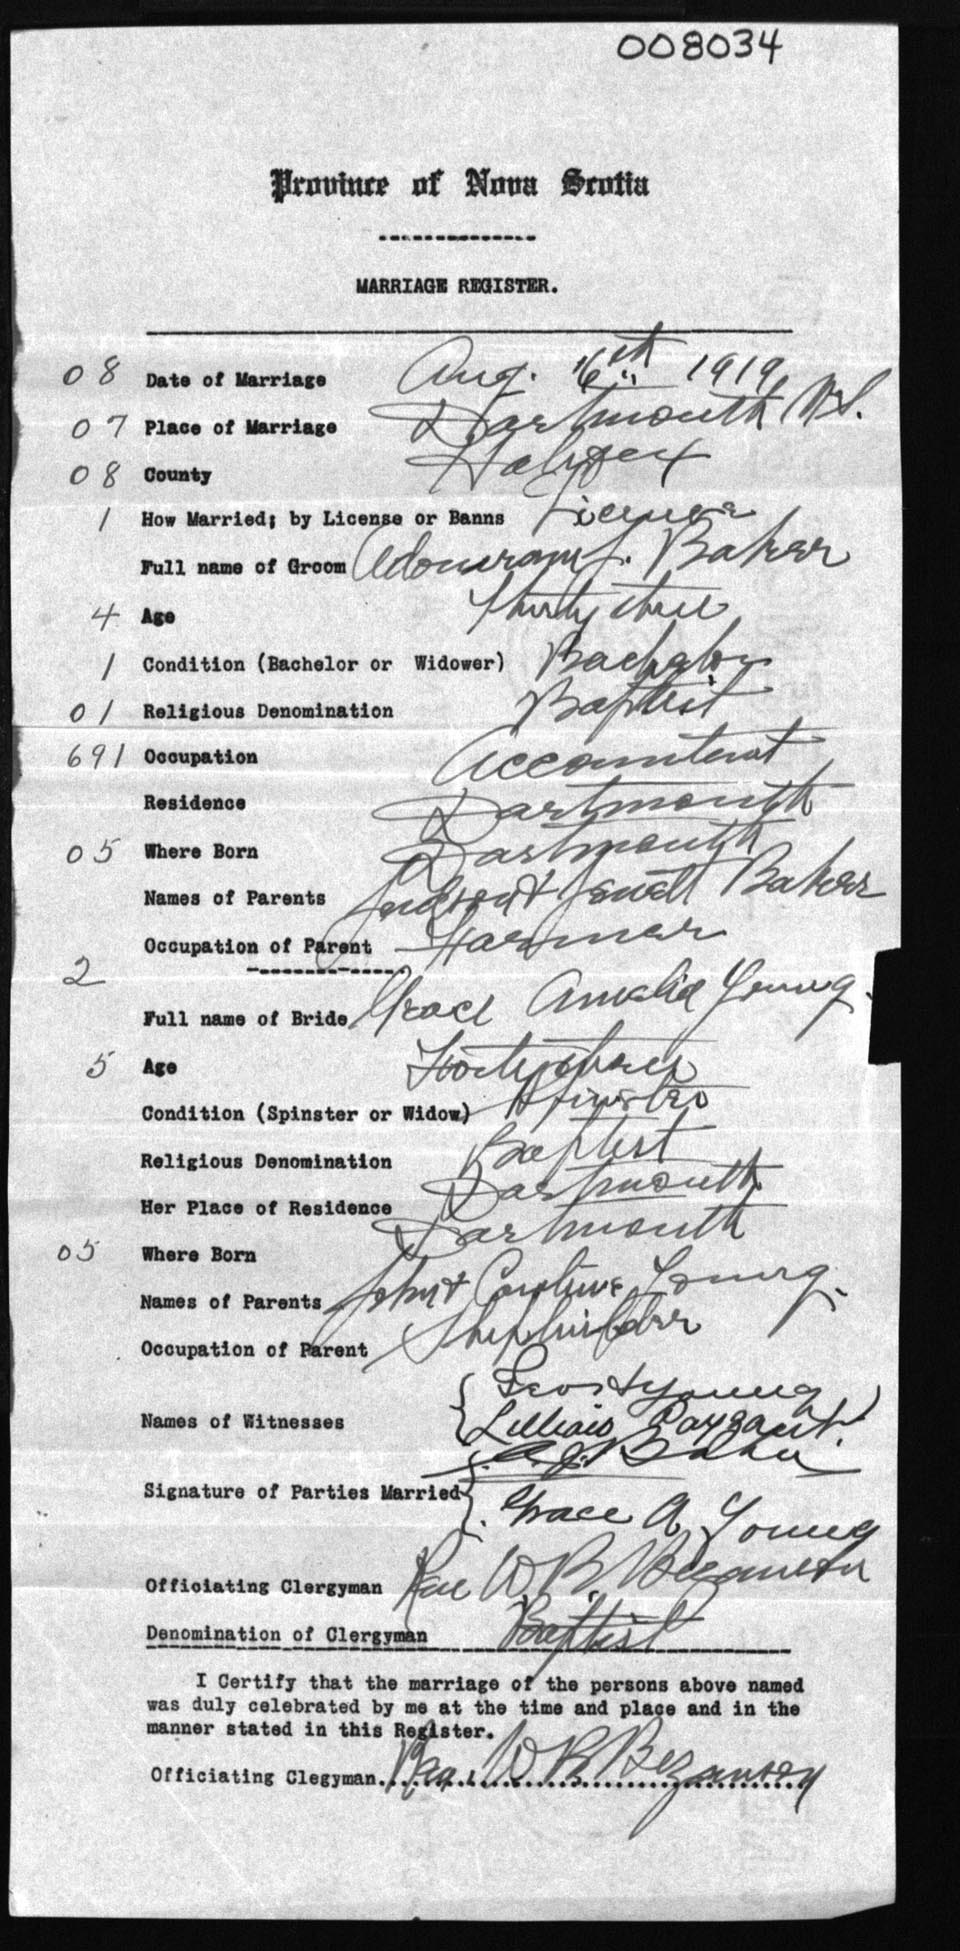 008034
Province of Nova Scotia
MARRIAGE REGISTER.
08 Date of Marriage Aug. 6th 1919
07 Place of Marriage Dartmouth N.S.
08 County Halifax
1 How Married; by License or Banns License
Full name of Groom Adoniram J. Baker
4 Age Thirty three
1 Condition (Bachelor or Widower) Bachelor
01 Religious Denomination Baptist
691 Occupation Accountant
Residence Dartmouth
05 Where Born Dartmouth
Names of Parents Judson & Baker
Occupation of Parent Farmer
2
Full name of Bride Grace Amelia Young
5 Age three
Condition (Spinster or Widow) Spinster
Religious Denomination Baptist
Her Place of Residence Dartmouth
05 Where Born Dartmouth
Names of Parents John & Caroline Young
Occupation of Parent Shipbuilder
Names of Witnesses Young
Lillian Payzant
Signature of Parties Married A. J. Baker
Grace A Young
Officiating Clergyman Rev W B Bezanson
Denomination of Clergyman Baptist
I Certify that the marriage of the persons above named
was duly celebrated by me at the time and place and in the
manner stated in this Register.
Officiating Clegyman Rev. W B Bezanson